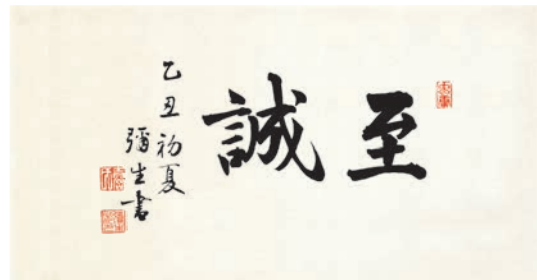 至誠
乙丑初夏
彌生書